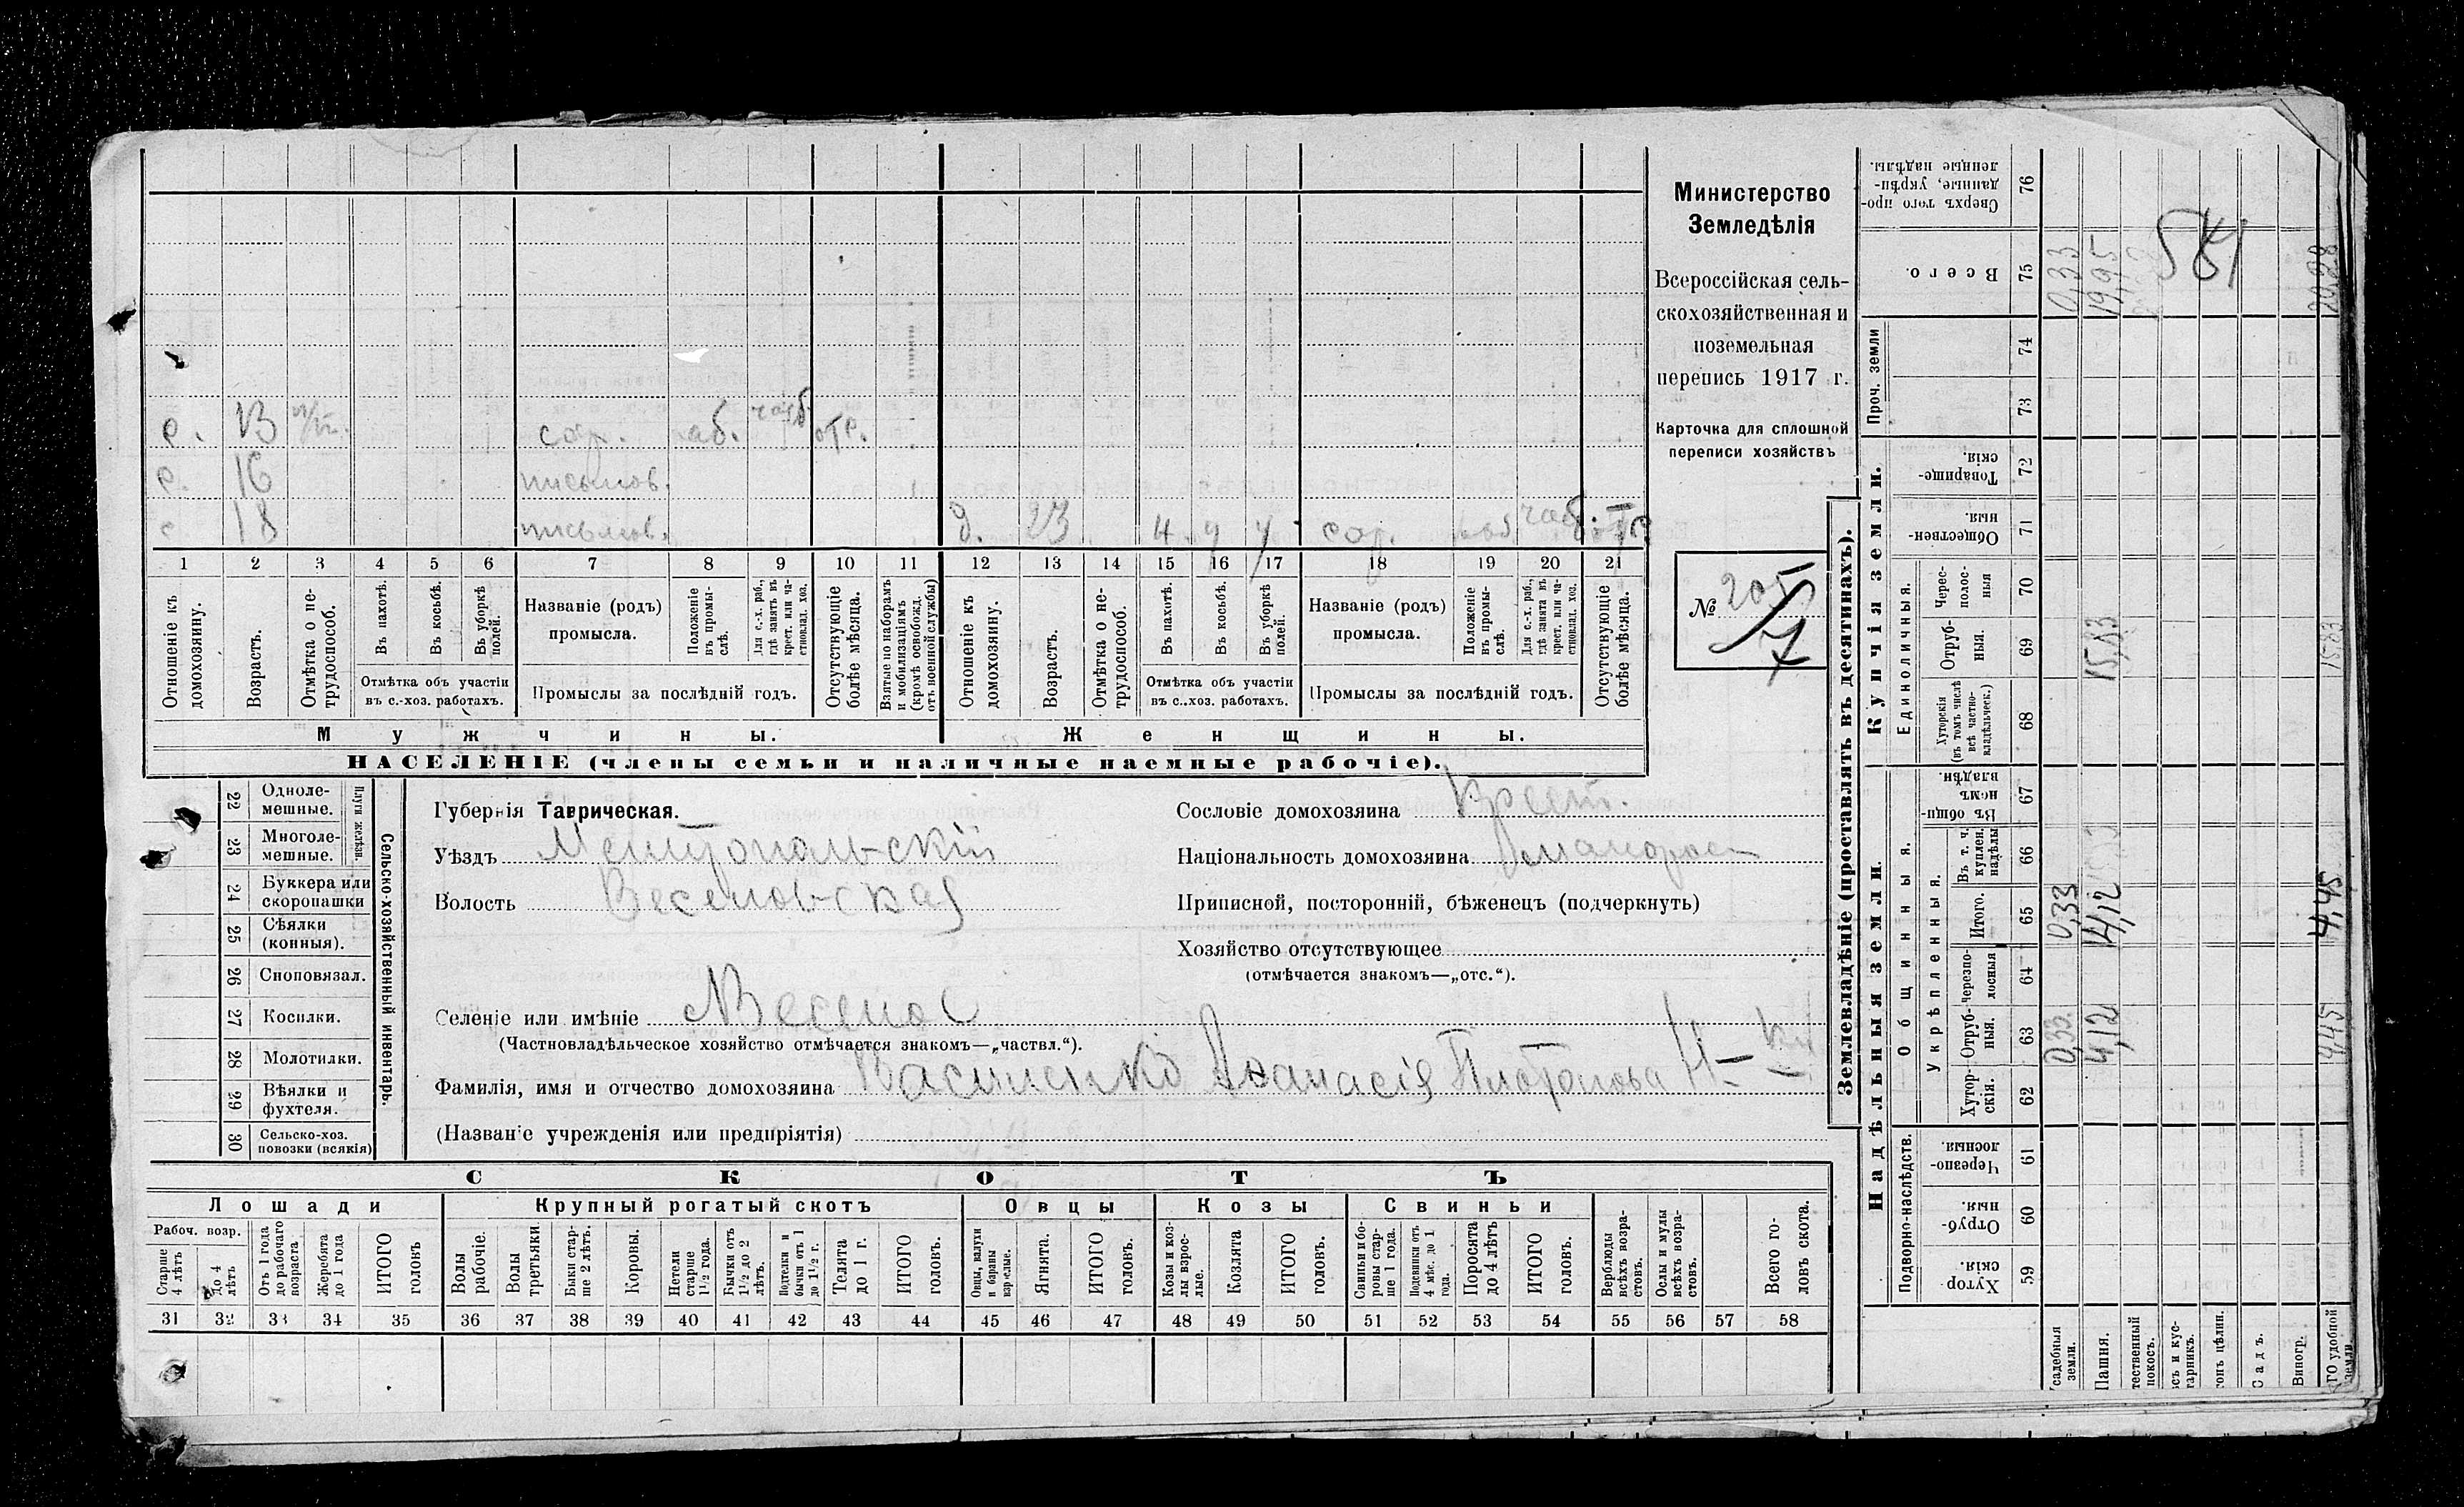 Министерство
Земледѣлія
Всероссійская сель-
скохозяйственная и
поземельная
перепись 1917 г.
Карточка для сплошной
переписи хозяйствъ
№ 205/7
е. 13 сар. раб. отс.
е. 16 письмов.
с. 18 письмов. д. 23 4 4 4 сар. раб. отс.
1 2 3 4 5 6 7 8 9 10 11 12 13 14 15 16 17 18 19 20 21
Отношеніе къ домохозяину.
Возрастъ.
Отмѣтка о не-трудоспособ.
Въ пахотѣ.
Въ косьбѣ.
Въ уборкѣ полей.
Отмѣтка объ участіи въ с.-хоз. работахъ.
Названіе (родъ) промысла.
Положеніе въ промы-слѣ.
Для с.-х. раб., гдѣ занятъ въ крест. или ча-стновлад. хоз.
Промыслы за послѣдній годъ.
Отсутствующіе болѣе мѣсяца.
Взятые по наборамъ и мобилизаціямъ (кромѣ освобожд. отъ военной службы)
Отношеніе къ домохозяину.
Возрастъ.
Отмѣтка о не-трудоспособ.
Въ пахотѣ.
Въ косьбѣ.
Въ уборкѣ полей.
Отмѣтка объ участіи въ с.-хоз. работахъ.
Названіе (родъ) промысла.
Положеніе въ промы-слѣ.
Для с.-х. раб., гдѣ занята въ крест. или ча-стновлад. хоз.
Промыслы за послѣдній годъ.
Отсутствующіе болѣе мѣсяца.
Мужчины. Женщины.
НАСЕЛЕНІЕ (члены семьи и наличные наемные рабочіе).
22 Одноле-мешные.
23 Многоле-мешные.
Плуги желѣзн.
24 Буккера или скоропашки
25 Сѣялки (конныя).
26 Сноповязал.
27 Косилки.
28 Молотилки.
29 Вѣялки и фухтеля.
30 Сельско-хоз. повозки (всякія)
Сельско-хозяйственный инвентарь.
Губернія Таврическая.
Уѣздъ Мелитопольскій
Волость Веселовская
Селеніе или имѣніе Веселое
(Частновладѣльческое хозяйство отмѣчается знакомъ—„частвл.“).
Фамилія, имя и отчество домохозяина Василенко Афанасія Платонова
(Названіе учрежденія или предпріятія)
Сословіе домохозяина Крест.
Національность домохозяина малорос
Приписной, посторонній, бѣженецъ (подчеркнуть)
Хозяйство отсутствующее
(отмѣчается знакомъ—„отс.“).
СКОТЪ
Лошади Крупный рогатый скотъ Овцы Козы Свиньи
Рабоч. возр.
Старше 4 лѣтъ
До 4 лѣтъ
Отъ 1 года до рабочаго возраста
Жеребята до 1 года
ИТОГО головъ
Волы рабочіе.
Волы третьяки
Быки стар-ше 2 лѣтъ.
Коровы.
Нетели старше 1 1/2 года.
Бычки отъ 1 1/2 до 2 лѣтъ.
Подтелки и бычки отъ 1 до 1 1/2 г.
Телята до 1 г.
ИТОГО головъ.
Овцы, валухи и бараны взрослые.
Ягнята.
ИТОГО головъ.
Козы и коз-лы взрос-лые.
Козлята
ИТОГО головъ.
Свиньи и бо-ровы стар-ше 1 года.
Подсвинки отъ 4 мѣс. до 1 года.
Поросята до 4 лѣтъ
ИТОГО головъ.
Верблюды всѣхъ возра-стовъ.
Ослы и мулы всѣхъ возра-стовъ.
Всего го-ловъ скота.
31 32 33 34 35 36 37 38 39 40 41 42 43 44 45 46 47 48 49 50 51 52 53 54 55 56 57 58
Землевладѣніе (проставлять въ десятинахъ).
Надѣльныя земли. Купчія земли. Проч. земли
Подворно-наслѣдств. Общинныя. Укрѣпленныя. Единоличныя.
Хутор-скія. 59
Отруб-ныя. 60
Черезпо-лосныя. 61
Хутор-скія. 62
Отруб-ныя. 63
Черезпо-лосныя 64
Итого. 65
Въ т. ч. куплен. надѣлы 66
Въ общин-номъ владѣн. 67
Хуторскія (въ томъ числѣ всѣ частно-владѣльческ.) 68
Отруб-ныя. 69
Черес-полос-ныя 70
Обществен-ныя. 71
Товарище-скія. 72
73
74
Всего. 75
Сверхъ того про-данные, укрѣп-ленные надѣлы. 76
Усадебныя земли. 0,33 0,33 0,33
Пашня. 4,12 4,12 15,83 19,95
тественный покосъ.
съ и кус-тарникъ.
гонъ цѣлин.
Садъ.
Виногр.
ГО удобной земли. 4,45 4,45 15,83 20,28
581